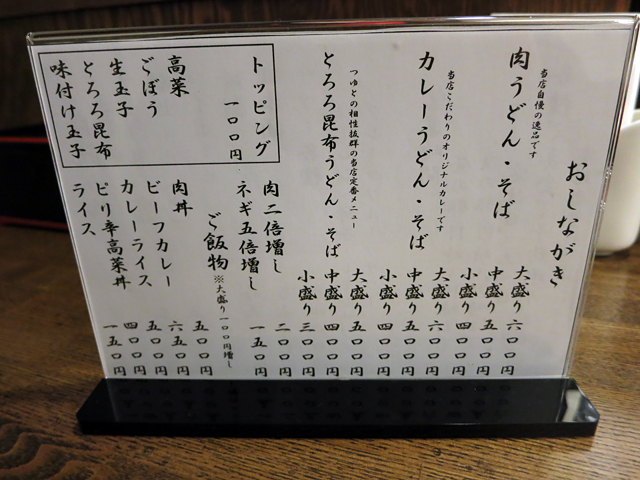 おしながき
当店自慢の逸品です
肉うどん・そば
大盛り 六〇〇円
中盛り 五〇〇円
小盛り 四〇〇円
当店こだわりのオリジナルカレーです
カレーうどん・そば
大盛り 六〇〇円
中盛り 五〇〇円
小盛り 四〇〇円
つゆとの相性抜群の当店定番メニュー
とろろ昆布うどん・そば
大盛り 五〇〇円
中盛り 四〇〇円
小盛り 三〇〇円
トッピング
一〇〇円
高菜
ごぼう
生玉子
とろろ昆布
味付け玉子
肉二倍増し 二〇〇円
ネギ五倍増し 一五〇円
ご飯物 ※大盛り一〇〇円増し
肉丼 五〇〇円
ビーフカレー 六五〇円
カレーライス 五〇〇円
ピリ辛高菜丼 四〇〇円
ライス 一五〇円